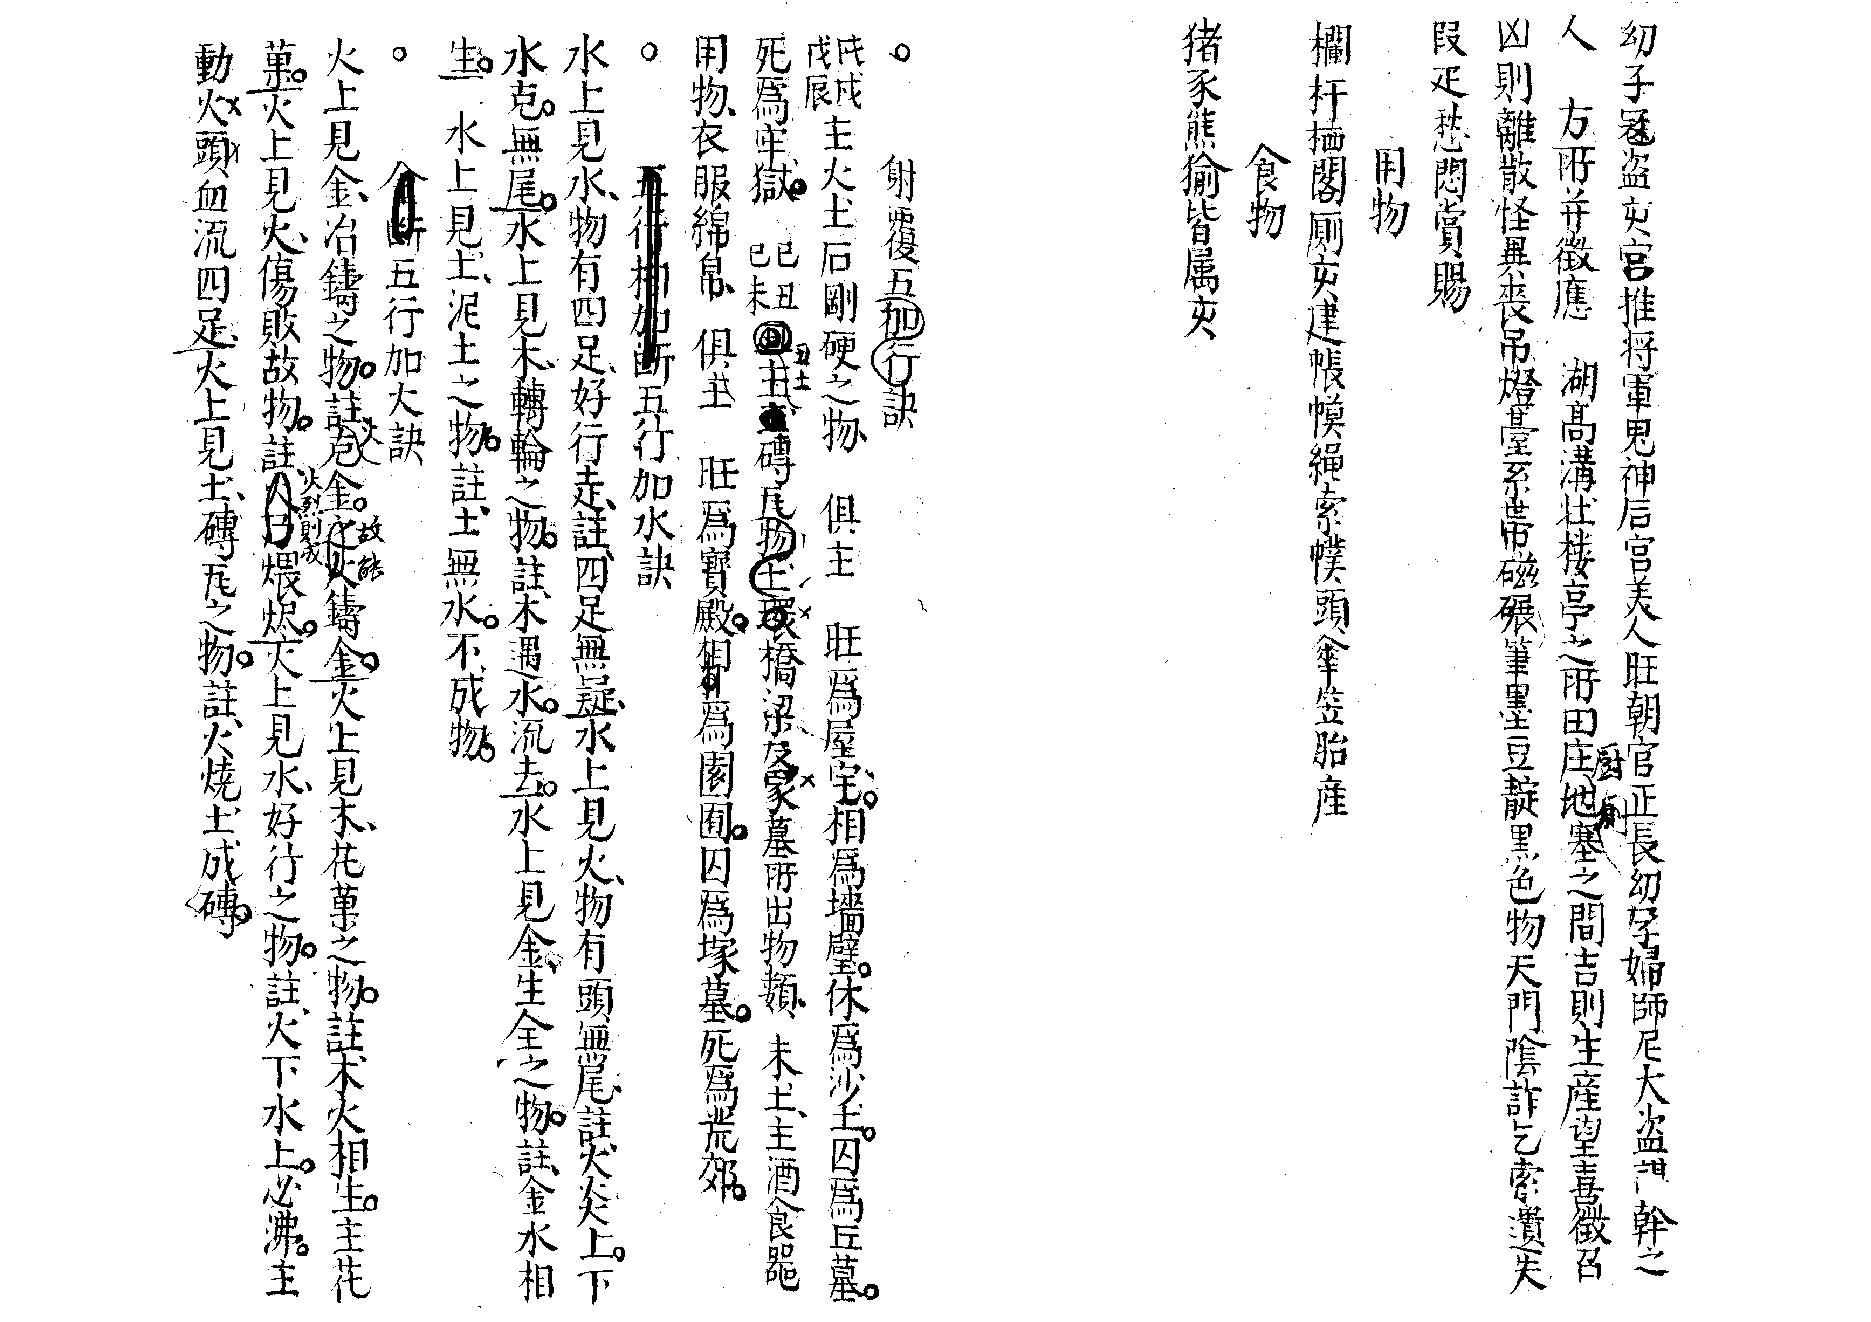 幼子冦盗亥宫推将軍鬼神后宫美人旺朝官正長幼孕婦師尼大盗幹之
人　方所并徵應　湖高溝壮楼亭之所田庄地塞之間吉則生産望喜徵召
厨厠
凶則離散怪異丧吊燈臺系帯磁碾筆墨豆靛黒色物天門陰詐乞索遺失
叚疋愁悶賞賜
用物
欄杆栖閣厠亥建帳幙繩索幞頭傘笠胎産
食物
猪豕熊㺄皆属亥
。　射覆五加行訣
戊戍戊辰主火土石剛硬之物、　俱主　旺爲屋宅。相爲墻壁。休爲沙土。囚爲丘墓。
死爲牢獄。　己丑己未丑土主磚瓦物橋梁及冡墓所出物類、　未土、主酒食器
用物、衣服綿帛、　俱主　旺爲寶殿。相爲園囿。囚爲塚墓。死爲荒郊。
。　五行相加断五行加水訣
水上見水、物有四足、好行走、註、四足無疑、水上見火、物有頭無尾、註、火炎上。下
水克。無尾。水上見木、轉輪之物。註、木遇水。流去。水上見金、生全之物。註、金水相
生。　水上見土、泥土之物。註、土無水。不成物。
。　断五行加火訣
火上見金、冶鑄之物。註火克金。故能鑄金。火上見木、花菓之物。註木火相生。主花
菓。火上見火、傷敗故物。註火烈則成煨烬。火上見水、好行之物。註、火下水上。必沸。主
動火頭血流四足、火上見土、磚瓦之物。註、火燒土、成磚。